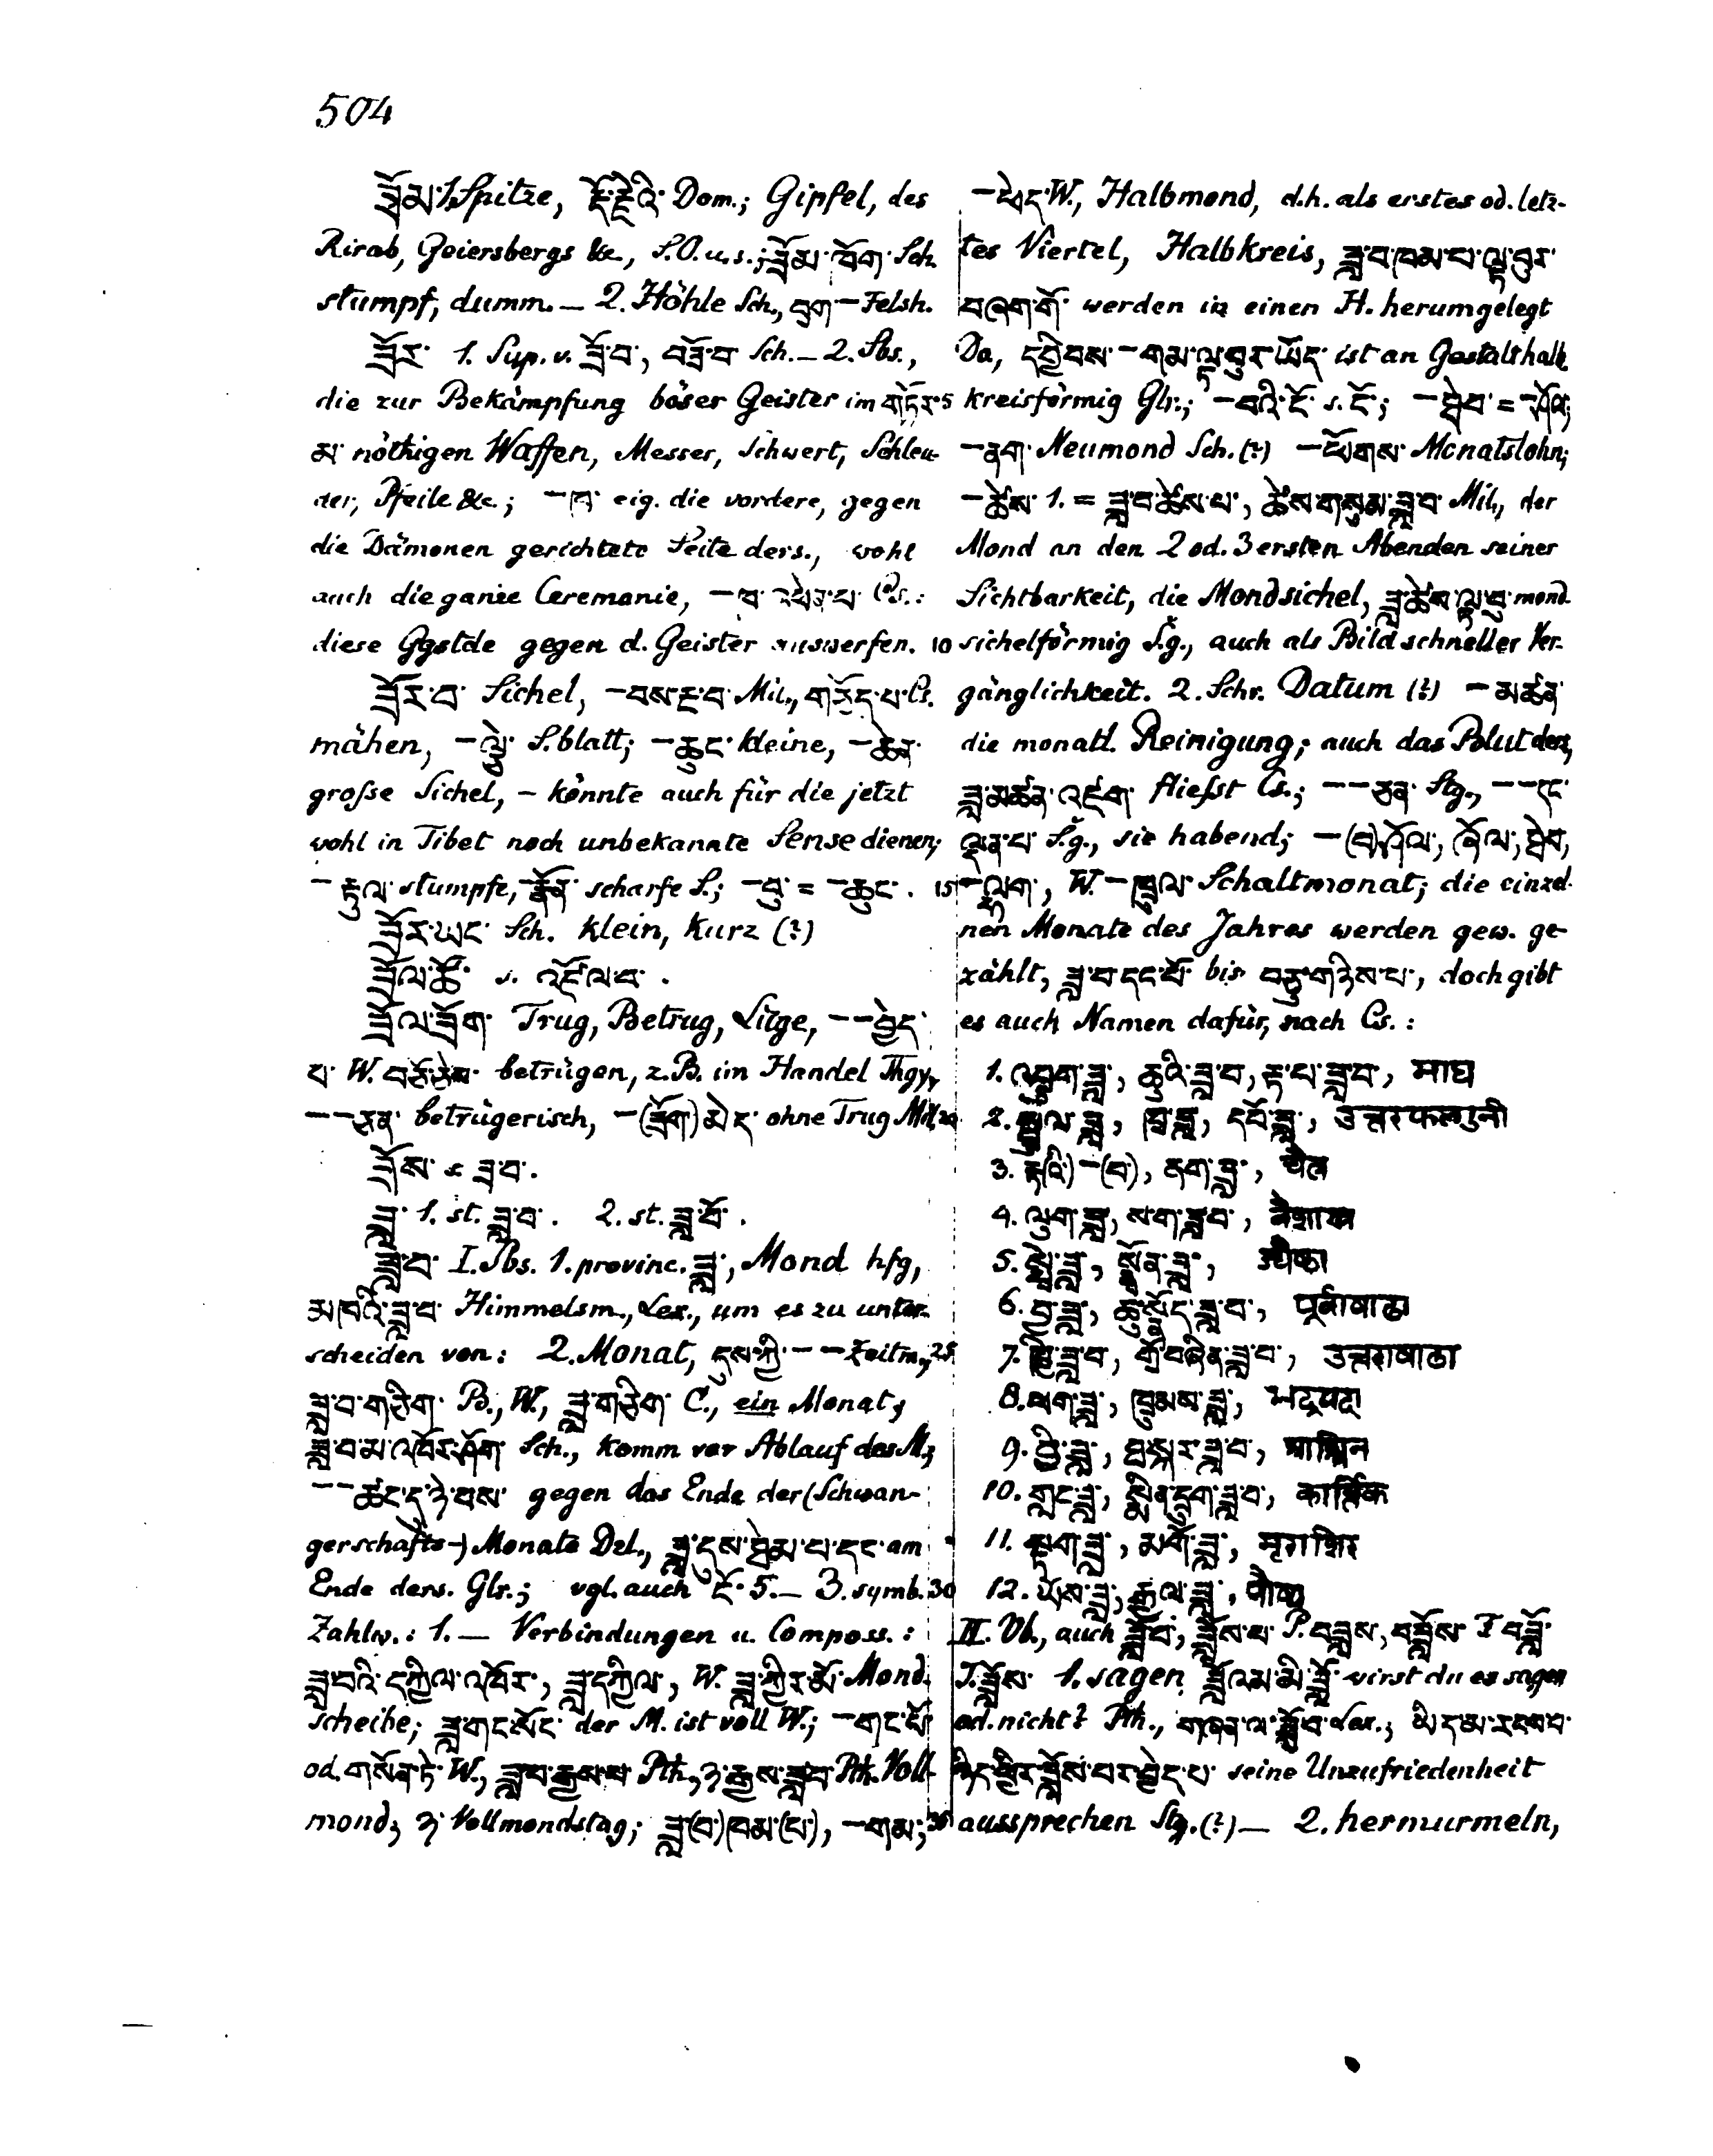 504
ཟོམ་ 1. Spitze, རྡོ་རྗེའི་ Dom.; Gipfel, des
Rirab, Geiersbergs &c., S.O. u. s.; ཟོམ་ Sch.
stumpf, dumm. — 2. Höhle Sch., བྲག་ — Felsh.
ཟོར་ 1. Sup. v. ཟོ་བ་, བཟོ་བ་ Sch. — 2. Sbs.,
die zur Bekämpfung böser Geister im གཏོར་ 5
མ་ nöthigen Waffen, Messer, Schwert, Schleu-
der, Pfeile &c.; — ཁ་ eig. die vordere, gegen
die Dämonen gerichtete Seite ders., wohl
auch die ganze Ceremonie, — ཁ་ འཕེན་པ་ Cs.:
diese Ggstde gegen d. Geister auswerfen. 10
ཟོར་བ་ Sichel, — བས་རྔ་བ་ Mil., གཅོད་པ་ Cs.
mähen, — ལྕེ་ S.blatt; — ཆུང་ kleine, — ཆེན་
grosse Sichel, — könnte auch für die jetzt
wohl in Tibet noch unbekannte Sense dienen;
— རྟུལ་ stumpfe, — རྣོན་ scharfe S.; — བུ་ = — ཆུང་. 15
ཟོར་ཡང་ Sch. klein, kurz (?)
ཟོལ་ཟོ་ s. འཛོལ་བ་.
ཟོལ་ཟོག་ Trug, Betrug, Lüge, — — བྱེད་
པ་ W. བཅོ་ཅེས་ betrügen, z. B. im Handel Thgy.,
— — ཅན་ betrügerisch, — (ཟོག་) མེད་ ohne Trug Mil. 20
ཟོས་ s. ཟ་བ་.
ཟླ་ 1. st. ཟླ་བ་. 2. st. ཟླ་བོ་.
ཟླ་བ་ I. Sbs. 1. provinc. ཟླ་, Mond hfg,
མཁའི་ཟླ་བ་ Himmelsm., Lex., um es zu unter-
scheiden von: 2. Monat, དུས་ཀྱི་ — — Zeitm., 25
ཟླ་བ་གཅིག་ B., W., ཟླ་གཅིག་ C., ein Monat;
ཟླ་བ་མ་འཁོར་ཤོག་ Sch., komm vor Ablauf des M.;
— — ཚང་དུ་ཉེ་བས་ gegen das Ende der (Schwan-
gerschafts-) Monate Dzl., ཟླ་དུས་ am
Ende ders. Glr.; vgl. auch ངོ་ 5. — 3. symb. 30
Zahlw.: 1. — Verbindungen u. Composs.:
ཟླ་བའི་དཀྱིལ་འཁོར་, ཟླ་དཀྱིལ་, W. ཟླ་ཀྱིར་མོ་ Mond-
scheibe; ཟླ་གང་སོང་ der M. ist voll W.; — གང་པོ་
od. གསོན་ཏེ་ W., ཟླ་བ་རྒྱས་པ་ Pth., ཉ་རྒྱས་ཟླ་བ་ Pth. Voll-
mond; ཉ་ Vollmondstag; ཟླ་(བ་)ཁམ་(པ་), — གམ་; 35
— ཕྱེད་ W., Halbmond, d. h. als erstes od. letz-
tes Viertel, Halbkreis, ཟླ་བ་ཁམ་པ་ལྟ་བུར་
བཞག་གོ་ werden in einen H. herumgelegt
Da, དབྱིབས་ — གམ་ལྟ་བུར་ཡོད་ ist an Gestalt halb
kreisförmig Glr.; — བའི་ངོ་ s. ངོ་; — ཤེབ་ = — ཤོལ་;
— ནག་ Neumond Sch. (?) — ཕོགས་ Monatslohn;
— ཚེས་ 1. = ཟླ་བ་ཚེས་པ་, ཚེས་གསུམ་ཟླ་བ་ Mil., der
Mond an den 2 od. 3 ersten Abenden seiner
Sichtbarkeit, die Mondsichel, ཟླ་ཚེས་ལྟ་བུ་ mond-
sichelförmig S.g., auch als Bild schneller Ver-
gänglichkeit. 2. Schr. Datum (?) — མཚན་
die monatl. Reinigung; auch das Blut ders.,
ཟླ་མཚན་འཛག་ fliesst Cs.; — — ཅན་ Stg., — — དང་
ལྡན་པ་ S.g., sie habend; — (བ་)ཤོལ་, ཤོལ་,
— ལྷག་, W. — ཁྲུལ་ Schaltmonat; die einzel-
nen Monate des Jahres werden gew. ge-
zählt, ཟླ་བ་དང་པོ་ bis བཅུ་གཉིས་པ་, doch gibt
es auch Namen dafür, nach Cs.:
1. འབྲུག་ཟླ་, ཆུའི་ཟླ་བ་, རྟ་པ་ཟླ་བ་, माघ
2. སྦྲུལ་ཟླ་, ཁྲ་ཟླ་, དབོ་ཟླ་, उत्तरफल्गुनी
3. རྟ(འི་) — (བ་), ནག་ཟླ་, चैत्र
4. ལུག་ཟླ་, ས་ག་ཟླ་བ་, वैशाख
5. སྤྲེ་ཟླ་, སྣྲོན་ཟླ་, ज्येष्ठा
6. བྱ་ཟླ་, ཆུ་སྟོད་ཟླ་བ་, पूर्वाषाढा
7. ཁྱི་ཟླ་བ་, གྲོ་བཞིན་ཟླ་བ་, उत्तराषाढा
8. ཕག་ཟླ་, ཁྲུམས་ཟླ་, भद्रपदा
9. བྱི་ཟླ་, ཐ་སྐར་ཟླ་བ་, आश्विन
10. གླང་ཟླ་, སྨིན་དྲུག་ཟླ་བ་, कार्त्तिक
11. སྟག་ཟླ་, མགོ་ཟླ་, मृगशिर
12. ཡོས་ཟླ་, རྒྱལ་ཟླ་, पौष
II. Vb., auch ཟློ་བ་, ཟློས་པ་ P. བཟླས་, བཟློས་ F. བཟློ་
J. ཟློས་ 1. sagen ཟློ་འམ་མི་ཟློ་ wirst du es sagen
od. nicht? Pth., གཞན་ལ་ཟློ་བ་ Lex.;
ཉིད་ཕྱིར་ཟློས་པར་བྱེད་པ་ seine Unzufriedenheit
aussprechen Stg. (?) — 2. hermurmeln,